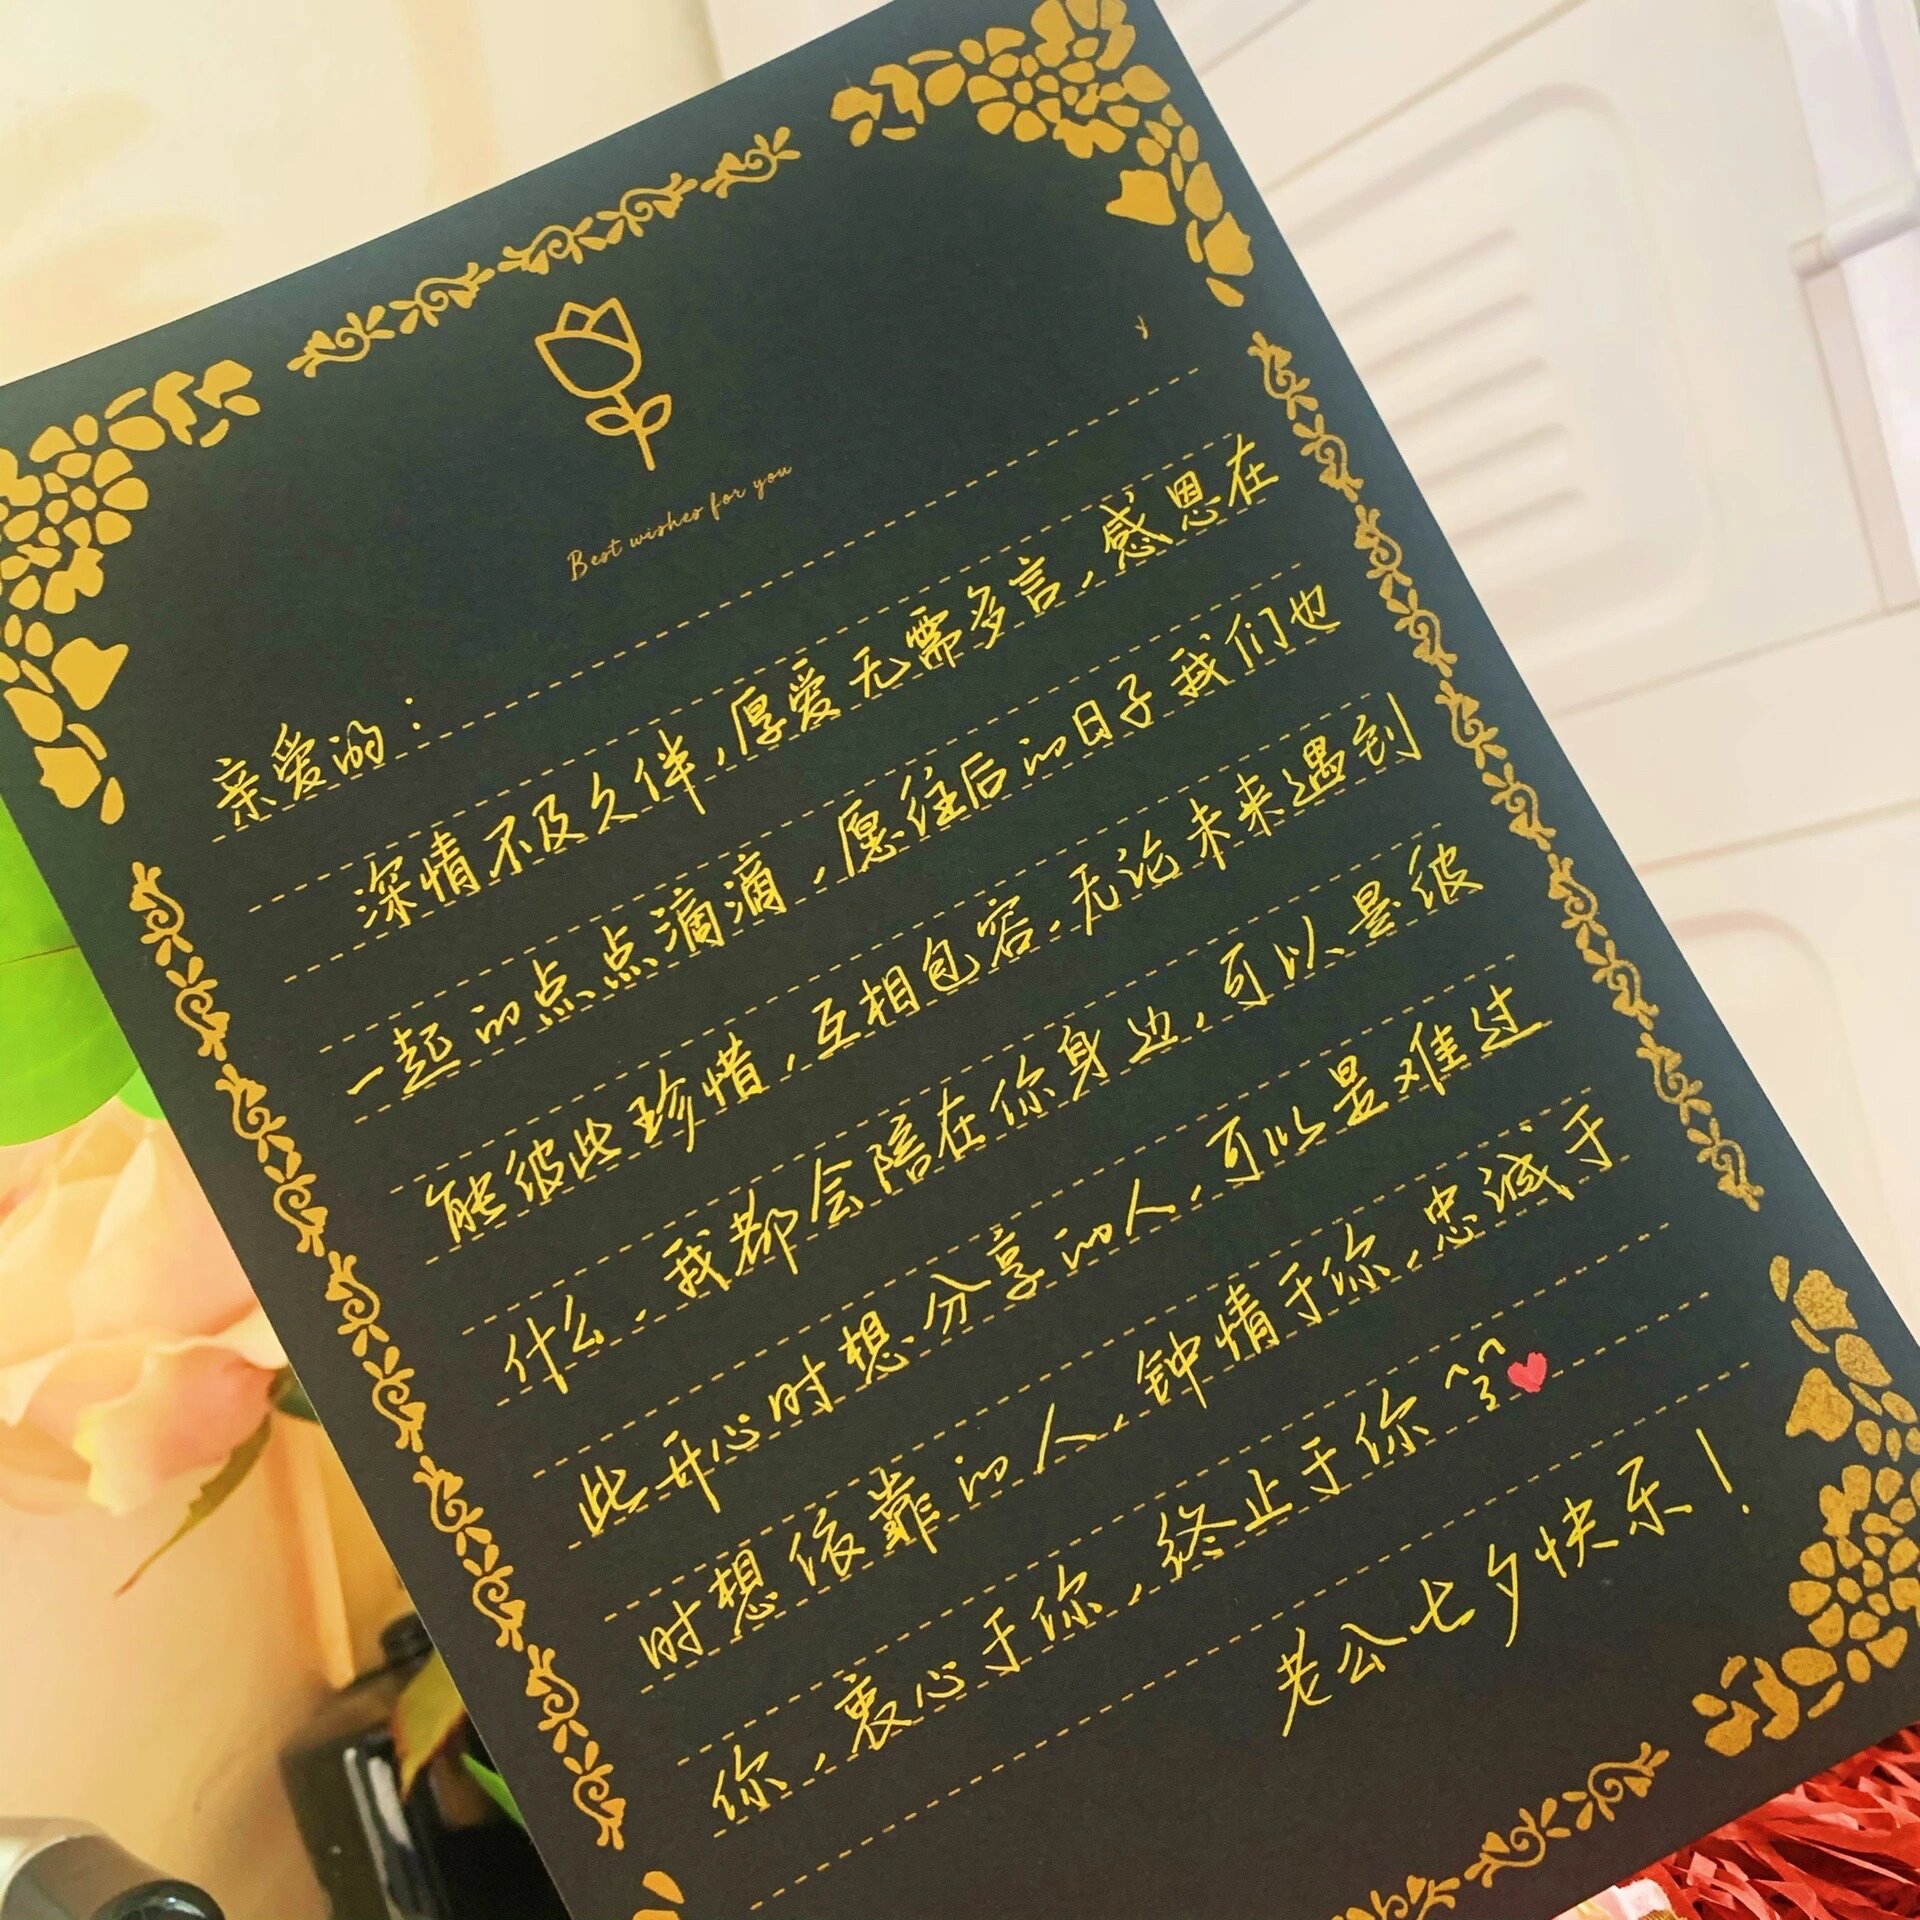 Best wishes for you
亲爱的：
深情不及久伴，厚爱无需多言，感恩在
一起的点点滴滴，愿往后的日子我们也
能彼此珍惜，互相包容，无论未来遇到
什么，我都会陪在你身边，可以是彼
此开心时想分享的人，可以是难过
时想依靠的人，钟情于你，忠诚于
你，衷心于你，终止于你
老公七夕快乐！